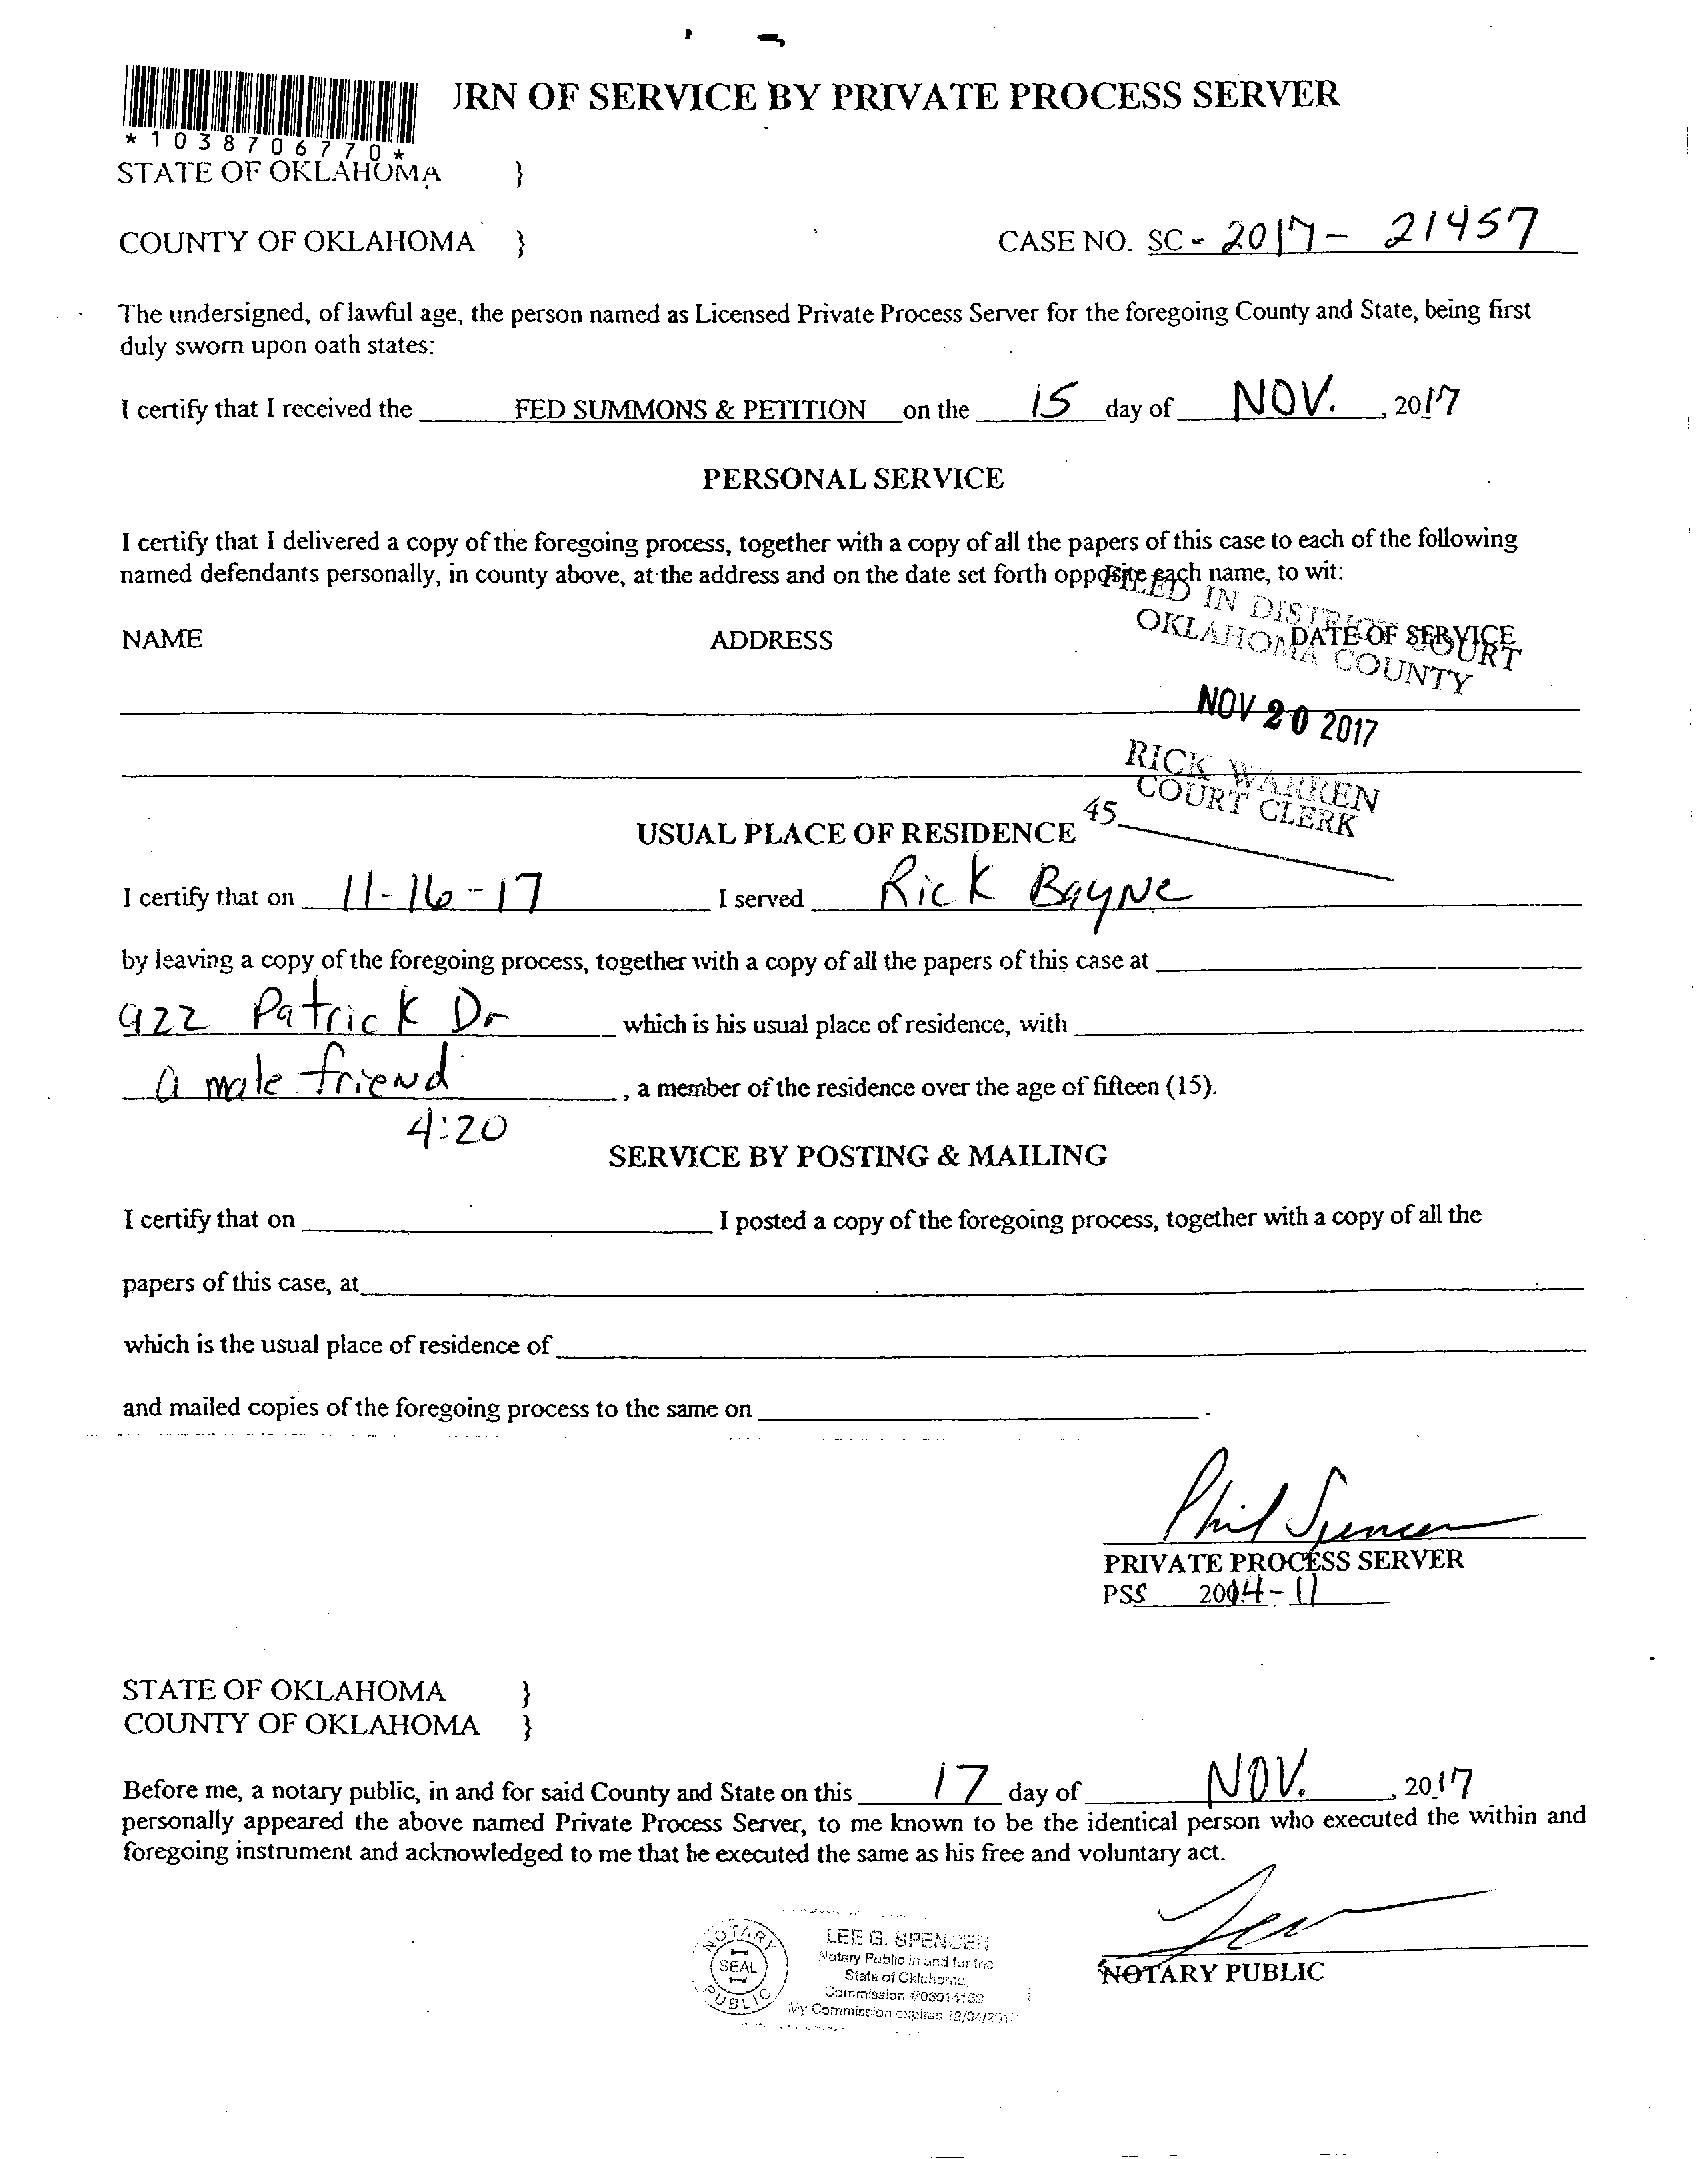 JRN OF SERVICE BY PRIVATE PROCESS SERVER
*1038706770*
STATE OF OKLAHOMA }
COUNTY OF OKLAHOMA } CASE NO. SC - 2017 - 21457
The undersigned, of lawful age, the person named as Licensed Private Process Server for the foregoing County and State, being first
duly sworn upon oath states:
I certify that I received the FED SUMMONS & PETITION on the 15 day of NOV. , 2017
PERSONAL SERVICE
I certify that I delivered a copy of the foregoing process, together with a copy of all the papers of this case to each of the following
named defendants personally, in county above, at the address and on the date set forth opposite each name, to wit:
FILED IN DISTRICT COURT
OKLAHOMA COUNTY
NAME ADDRESS DATE OF SERVICE
NOV 20 2017
RICK WARREN
COURT CLERK
45
USUAL PLACE OF RESIDENCE
I certify that on 11-16-17 I served Rick Bayne
by leaving a copy of the foregoing process, together with a copy of all the papers of this case at
922 Patrick Dr which is his usual place of residence, with
a male friend , a member of the residence over the age of fifteen (15).
4:20
SERVICE BY POSTING & MAILING
I certify that on I posted a copy of the foregoing process, together with a copy of all the
papers of this case, at
which is the usual place of residence of
and mailed copies of the foregoing process to the same on .
Phil Spencer
PRIVATE PROCESS SERVER
PSS 2004-11
STATE OF OKLAHOMA }
COUNTY OF OKLAHOMA }
Before me, a notary public, in and for said County and State on this 17 day of NOV. , 2017
personally appeared the above named Private Process Server, to me known to be the identical person who executed the within and
foregoing instrument and acknowledged to me that he executed the same as his free and voluntary act.
NOTARY PUBLIC
NOTARY
SEAL
PUBLIC
LEE G. SPENCER
Notary Public in and for the
State of Oklahoma
Commission
My Commission expires